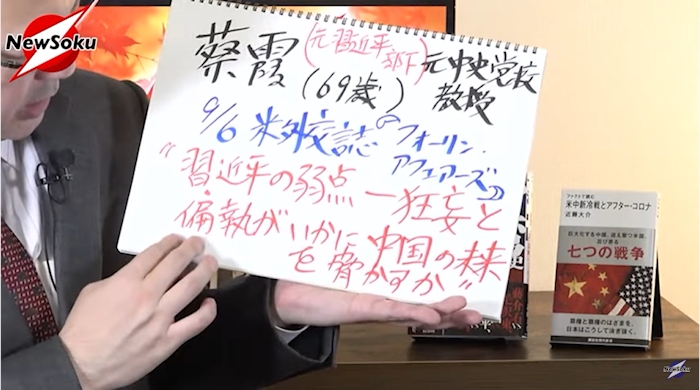 NewSoku
蔡霞
(元習近平部下)
(69歳)
元中央党校
教授
9/6 米外交誌の
フォーリン・
アフェアーズ
"習近平の弱点 ー狂妄と
偏執がいかに中国の未来"
を脅かすか
ファクトで読む
米中新冷戦とアフター・コロナ
近藤大介
巨大化する中国、迎え撃つ米国、
忍び寄る
七つの戦争
覇権と覇権のはざまを、
日本はこうして泳ぎ抜く。
講談社現代新書
NewSoku